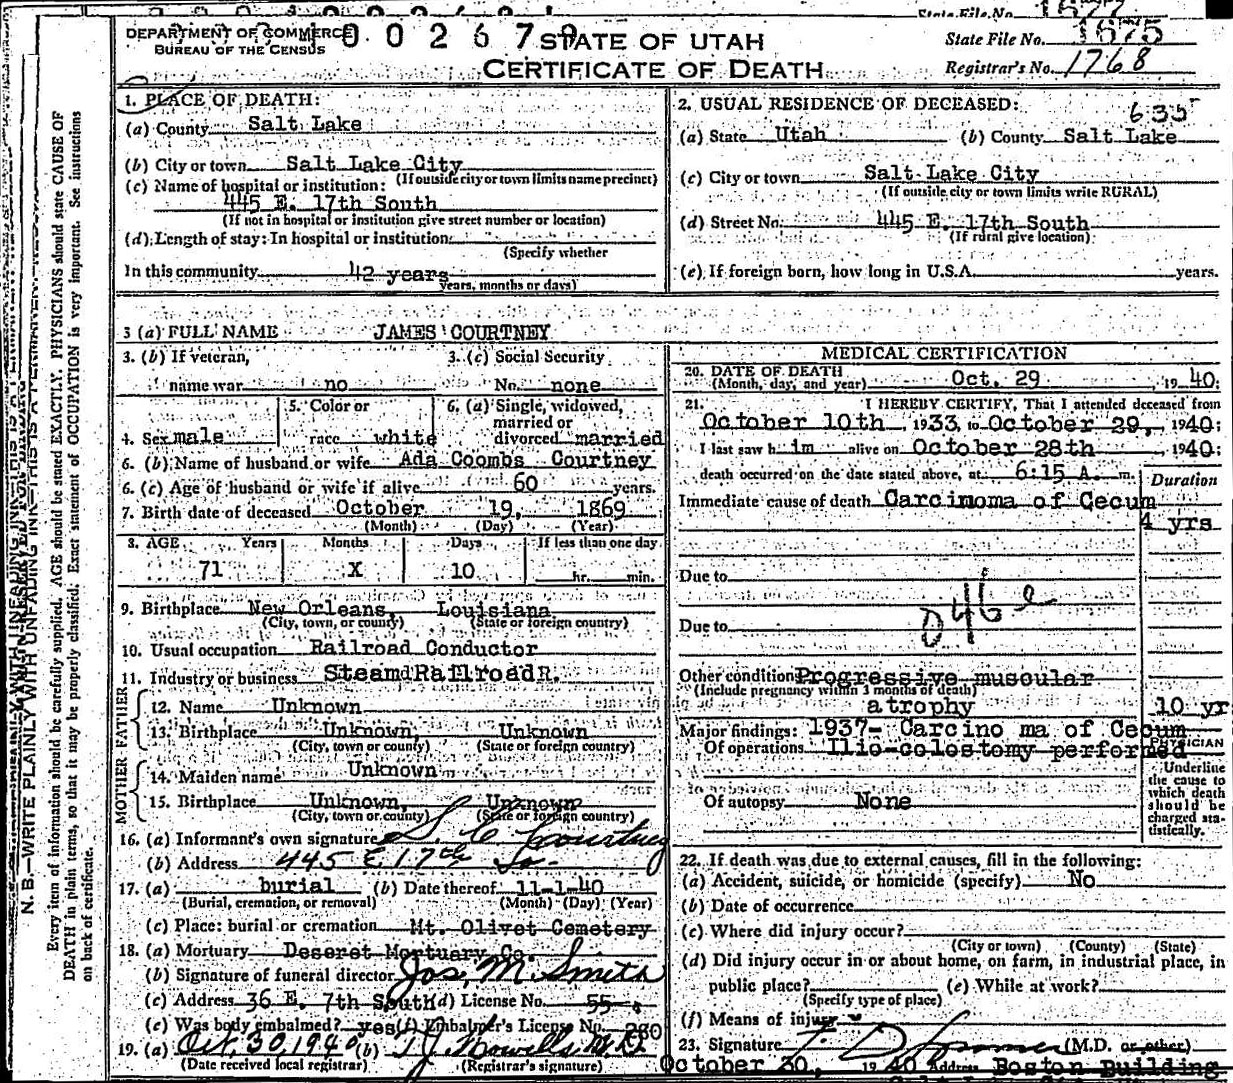 State File No. 1577
DEPARTMENT OF COMMERCE
BUREAU OF THE CENSUS
0 0 2 6 7 9
STATE OF UTAH
CERTIFICATE OF DEATH
State File No. 1675
Registrar's No. 1768
1. PLACE OF DEATH:
(a) County Salt Lake
(b) City or town Salt Lake City
(If outside city or town limits name precinct)
(c) Name of hospital or institution:
445 E. 17th South
(If not in hospital or institution give street number or location)
(d) Length of stay: In hospital or institution
(Specify whether
In this community 42 years
years, months or days)
2. USUAL RESIDENCE OF DECEASED:
635
(a) State Utah (b) County Salt Lake
(c) City or town Salt Lake City
(If outside city or town limits write RURAL)
(d) Street No. 445 E. 17th South
(If rural give location)
(e) If foreign born, how long in U.S.A. years.
3 (a) FULL NAME JAMES COURTNEY
3. (b) If veteran, name war no
3. (c) Social Security No. none
4. Sex male
5. Color or race white
6. (a) Single, widowed, married or divorced married
6. (b) Name of husband or wife Ada Coombs Courtney
6. (c) Age of husband or wife if alive 60 years.
7. Birth date of deceased October 19, 1869
(Month) (Day) (Year)
8. AGE Years Months Days If less than one day
71 X 10 hr. min.
9. Birthplace New Orleans, Louisiana
(City, town, or county) (State or foreign country)
10. Usual occupation Railroad Conductor
11. Industry or business Steam Railroad R.
FATHER
12. Name Unknown
13. Birthplace Unknown, Unknown
(City, town or county) (State or foreign country)
MOTHER
14. Maiden name Unknown
15. Birthplace Unknown, Unknown
(City, town or county) (State or foreign country)
16. (a) Informant's own signature S. C. Courtney
(b) Address 445 E 17th So
17. (a) burial (b) Date thereof 11-1-40
(Burial, cremation, or removal) (Month) (Day) (Year)
(c) Place: burial or cremation Mt. Olivet Cemetery
18. (a) Mortuary Deseret Mortuary Co.
(b) Signature of funeral director Jos. M. Smith
(c) Address 36 E. 7th South (d) License No. 55
(e) Was body embalmed? yes (f) Embalmer's License No. 280
19. (a) Oct, 30, 1940 (b) T J Howells M.D.
(Date received local registrar) (Registrar's signature)
MEDICAL CERTIFICATION
20. DATE OF DEATH
(Month, day, and year) Oct. 29 1940
21. I HEREBY CERTIFY, That I attended deceased from
October 10th, 1933, to October 29, 1940;
I last saw h im alive on October 28th 1940;
death occurred on the date stated above, at 6:15 A. m.
Duration
Immediate cause of death Carcinoma of Cecum
4 yrs
Due to
Due to
046e
Other conditions Progressive muscular
(Include pregnancy within 3 months of death)
atrophy 10 yr
Major findings: 1937- Carcinoma of Cecum
Of operations Ilio-colostomy performed
PHYSICIAN
Underline the cause to which death should be charged statistically.
Of autopsy None
22. If death was due to external causes, fill in the following:
(a) Accident, suicide, or homicide (specify) No
(b) Date of occurrence
(c) Where did injury occur?
(City or town) (County) (State)
(d) Did injury occur in or about home, on farm, in industrial place, in
public place? (e) While at work?
(Specify type of place)
(f) Means of injury
23. Signature (M.D. or other)
October 30, 1940 Address Boston Building
N. B.—WRITE PLAINLY WITH UNFADING INK—THIS IS A PERMANENT
Every item of information should be carefully supplied. AGE should be stated EXACTLY. PHYSICIANS should state CAUSE OF
DEATH in plain terms, so that it may be properly classified. Exact statement of OCCUPATION is very important. See instructions
on back of certificate.